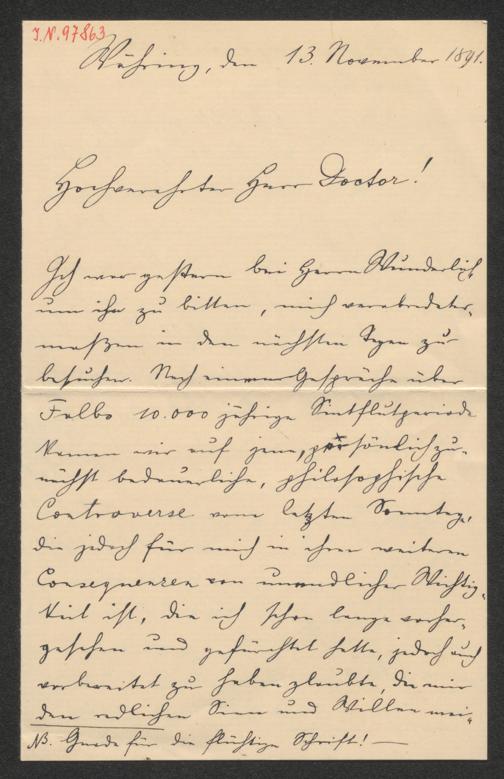 J.N. 97863
Währing, den 13. November 1891.
Hochverehrter Herr Doctor!
Ich war gestern bei Herrn Wunderlich,
um ihn zu bitten, mich verabredeter-
maßen in den nächsten Tagen zu
besuchen. Nach einem Gespräche über
Falbs 10.000 jährige Sintflutperiode
kamen wir auf jene, persönlich zu-
nächst bedauerliche, philosophische
Controverse vom letzten Sonntag,
die jedoch für mich in ihren weiteren
Consequenzen von unendlicher Wichtig-
keit ist, die ich schon lange vorher-
gesehen und gefürchtet hatte, jedoch auch
vorbereitet zu haben glaubte, die mir
den redlichen Sinn und Willen mei-
NB. Gnade für die flüchtige Schrift! —